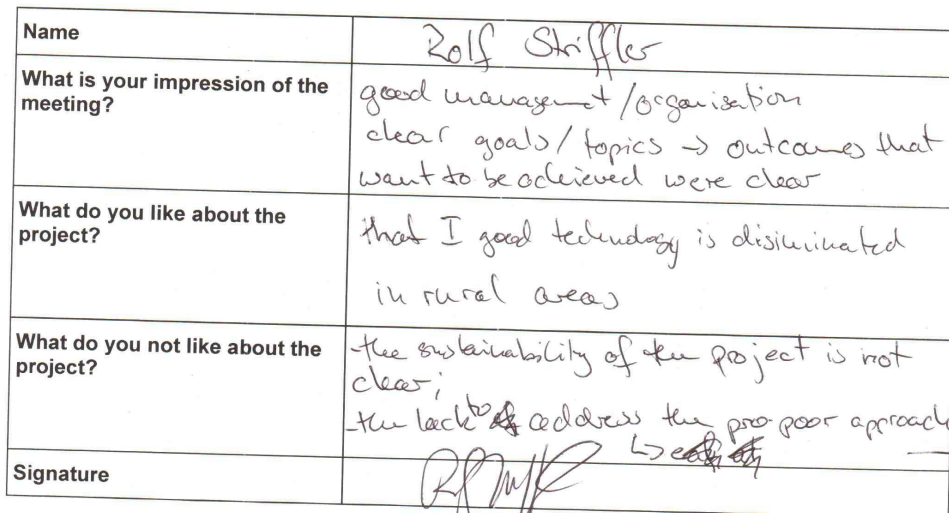 Name
Rolf Striffler
What is your impression of the
meeting?
good management/organisation
clear goals/topics → outcomes that
want to be achieved were clear
What do you like about the
project?
that I good technology is disiminated
in rural areas
What do you not like about the
project?
-the sustainability of the project is not
clear;
-the lack to address the pro-poor approach
Signature